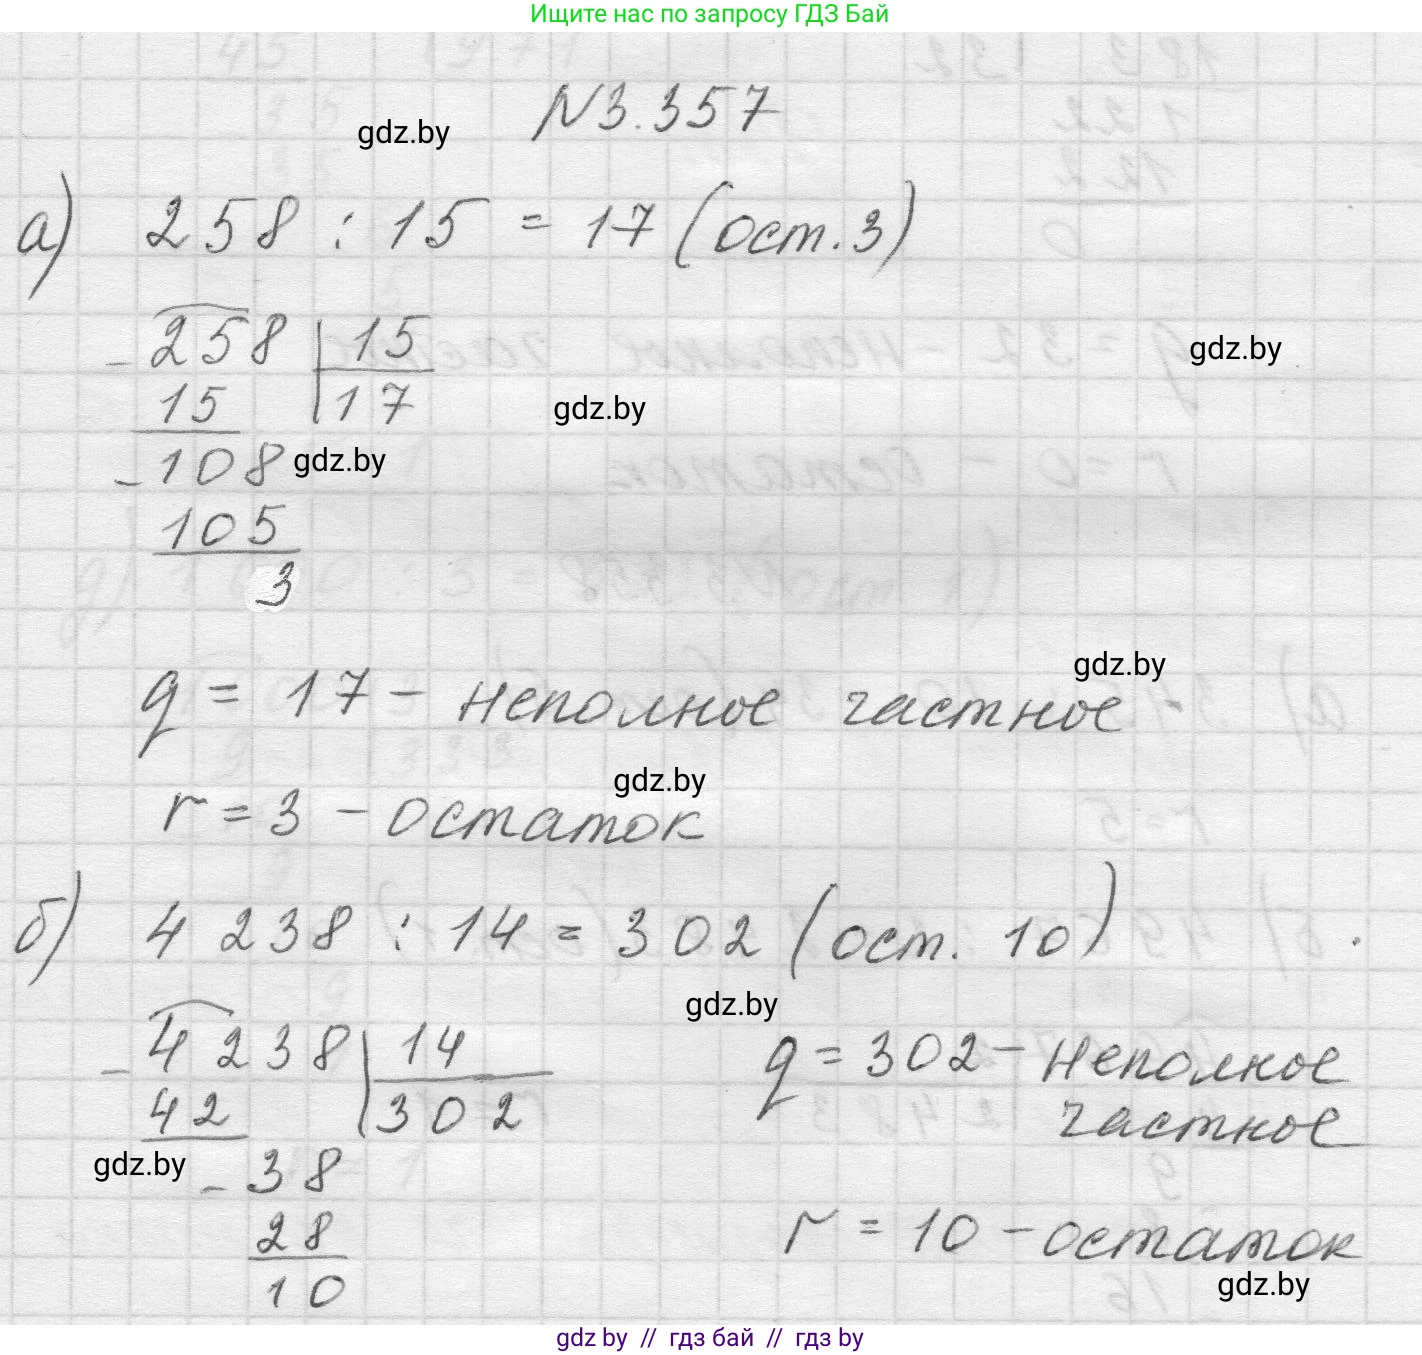 Ищите нас по запросу ГДЗ Бай
N3.357
gdz.by
а) 258 : 15 = 17 (ост. 3)
- 258 | 15
15 | 17
gdz.by
gdz.by
- 108
gdz.by
105
3
q = 17 - неполное частное
gdz.by
gdz.by
r = 3 - остаток
б) 4 238 : 14 = 302 (ост. 10)
gdz.by
- 4238 | 14
42 | 302
gdz.by
- 38
28
10
q = 302 - неполное
частное
r = 10 - остаток
gdz.by
gdz by // гдз бай // гдз by